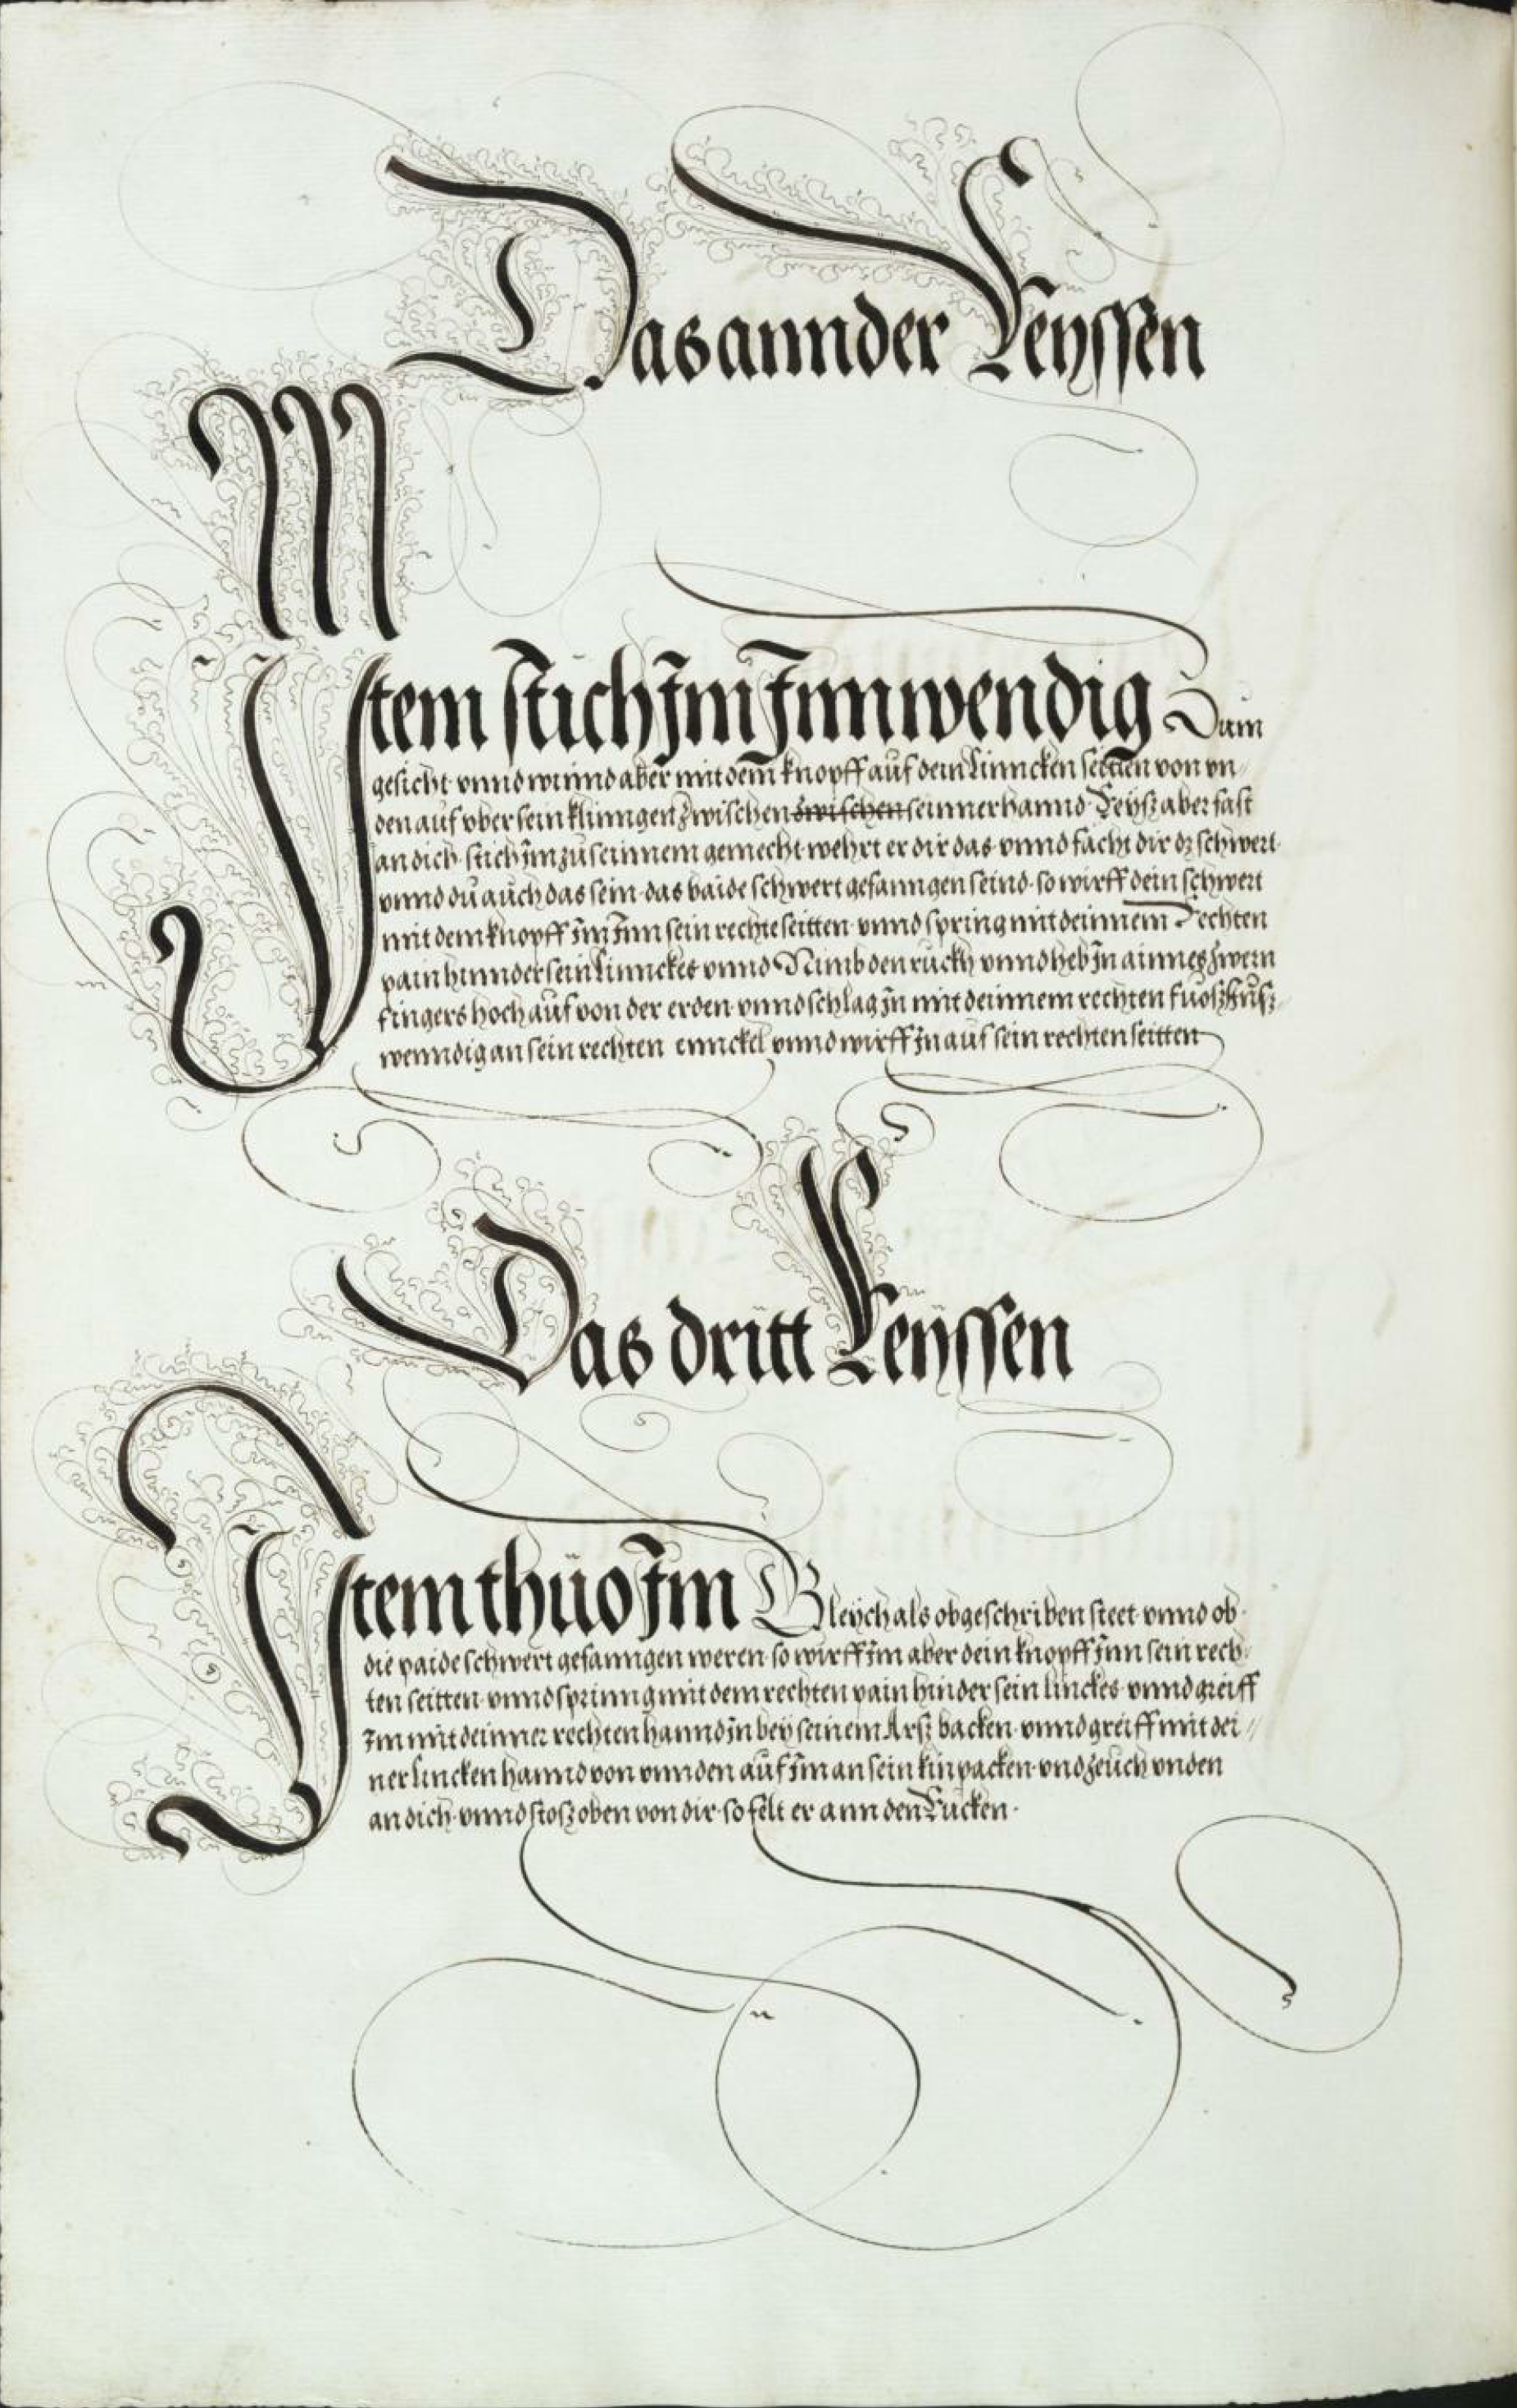 Das annder Reyssen
Item stich Im Innwendig Zum
gesicht vnnd winnd aber mit dem knopff auf dein Linncken seitten von vn//
den auf vber sein klinngen zwischen zwischen seinner hannd Reysz aber fast
an dich stich Im zu seinnem gemecht wehrt er dir das vnnd facht dir dz schwert
vnnd du auch das sein das baide schwert gefanngen seind so wirff dein schwert
mit dem knopff Im Inn sein rechte seitten vnnd spring mit deinnem Rechten
pain hinnder sein Linnckes vnnd Nimb den ruckh vnnd heb In ainnes zwern
fingers hoch auf von der erden vnnd schlag In mit deinnem rechten fuosz Ausz
wenndig an sein rechten ennckel vnnd wirff In auf sein rechten seitten
Das dritt Reyssen
Item thüo Im Gleych als obgeschriben steet vnnd ob
die paide schwert gefanngen weren so wirff Im aber dein knopff Inn sein rech
ten seitten vnnd sprinng mit dem rechten pain hinder sein linckes vnnd greiff
Im mit deinner rechten hannd In bey seinem Arsz backen vnnd greiff mit dei //
ner lincken hannd von vnnden auf Im an sein kinpacken vnd zeuch vnden
an dich vnnd stosz oben von dir so felt er ann den Rucken